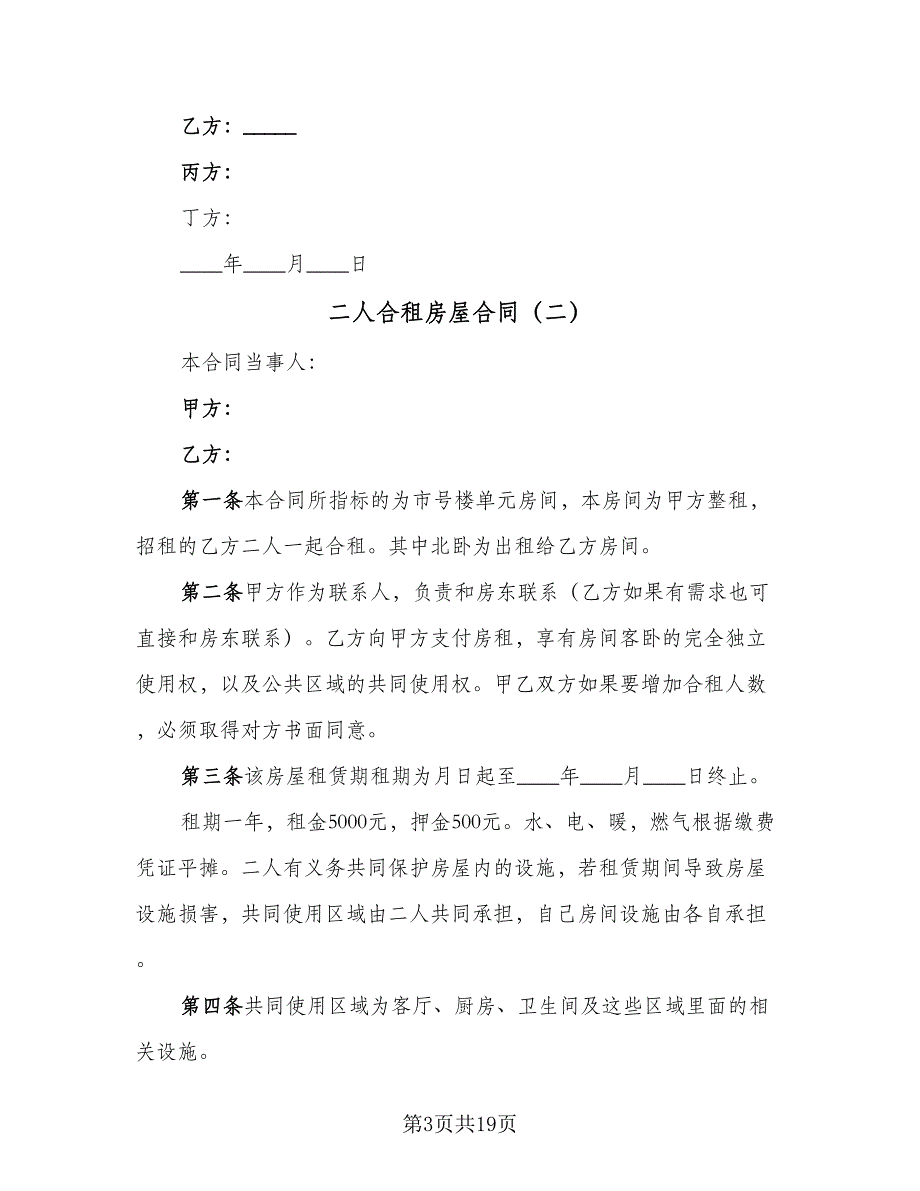 乙方：_____
丙方：
丁方：
____年____月____日
二人合租房屋合同（二）
本合同当事人：
甲方：
乙方：
第一条本合同所指标的为市号楼单元房间，本房间为甲方整租，
招租的乙方二人一起合租。其中北卧为出租给乙方房间。
第二条甲方作为联系人，负责和房东联系（乙方如果有需求也可
直接和房东联系）。乙方向甲方支付房租，享有房间客卧的完全独立
使用权，以及公共区域的共同使用权。甲乙双方如果要增加合租人数
，必须取得对方书面同意。
第三条该房屋租赁期租期为月日起至____年____月____日终止。
租期一年，租金5000元，押金500元。水、电、暖，燃气根据缴费
凭证平摊。二人有义务共同保护房屋内的设施，若租赁期间导致房屋
设施损害，共同使用区域由二人共同承担，自己房间设施由各自承担
。
第四条共同使用区域为客厅、厨房、卫生间及这些区域里面的相
关设施。
第3页共19页